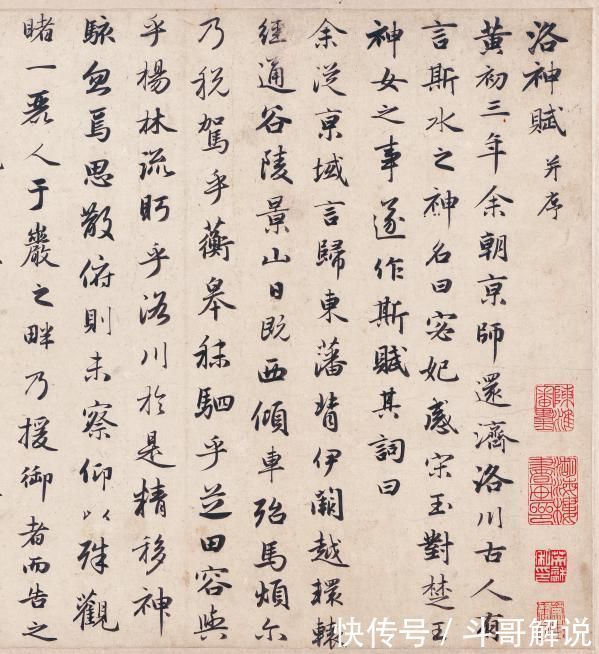 洛神賦 并序
黃初三年余朝京師還濟洛川古人有
言斯水之神名曰宓妃感宋玉對楚王
神女之事遂作斯賦其詞曰
余從京域言歸東藩背伊闕越轘轅
經通谷陵景山日既西傾車殆馬煩尔
乃稅駕乎蘅皋秣駟乎芝田容與
乎楊林流眄乎洛川於是精移神
駭忽焉思散俯則未察仰以殊觀
睹一麗人于巖之畔乃援御者而告之
快传号 / 斗哥解说